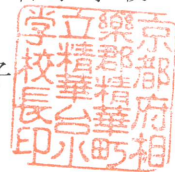 京都府相
樂郡精華町
立精華台小
学校長印